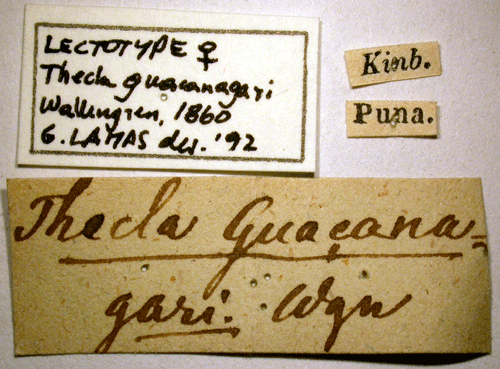 LECTOTYPE ♀
Thecla guacanagari
Wallengren, 1860
G. LAMAS det. '92
Kinb.
Puna.
Thecla Guaçana-
gari. Wgn